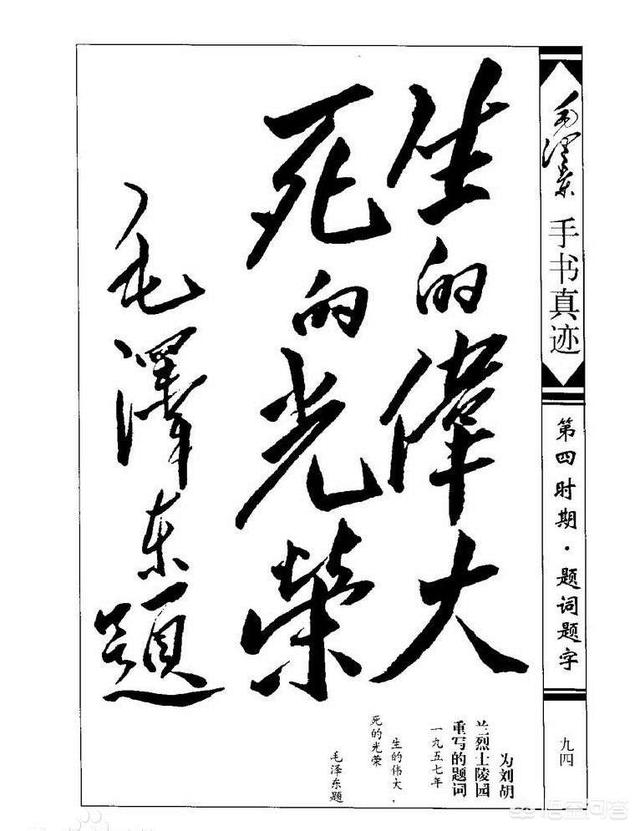 生的偉大
死的光榮
毛澤东題
毛泽东
手书真迹
第四时期·题词题字
九四
为刘胡
兰烈士陵园
重写的题词
一九五七年
生的伟大,
死的光荣
毛泽东题
悟空问答